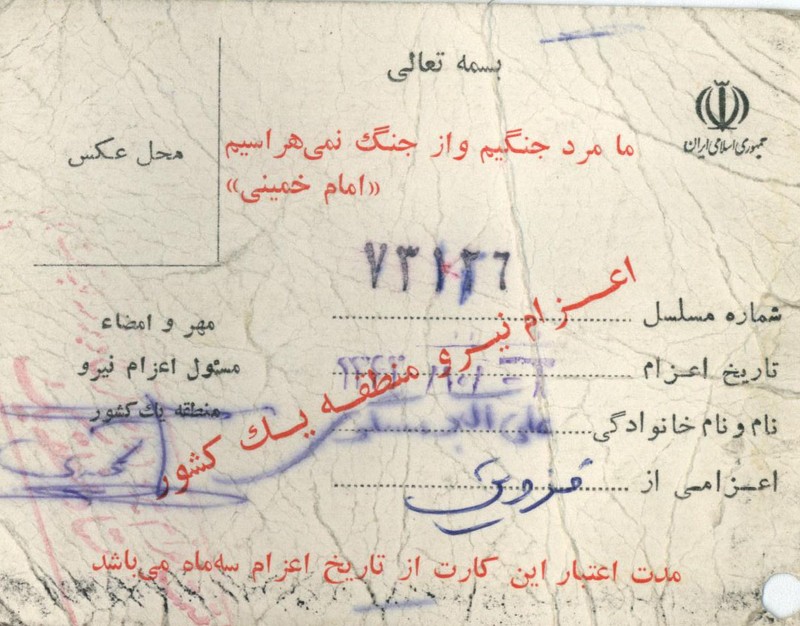 بسمه تعالی
جمهوری اسلامی ایران
ما مرد جنگیم واز جنگ نمی‌هراسیم
«امام خمینی»
محل عکس
شماره مسلسل
تاریخ اعزام
نام و نام خانوادگی علی
اعزامی از قزوین
اعزام نیرو منطقه یک کشور
مهر و امضاء
مسئول اعزام نیرو
منطقه یک کشور
مدت اعتبار این کارت از تاریخ اعزام سه‌ماه می‌باشد